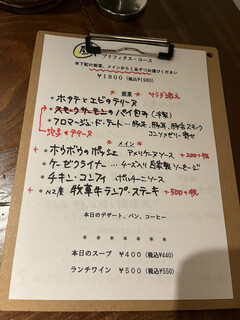 プリフィクス・コース
※下記の前菜、メインから１品ずつお選びください
￥1800 (税込¥1980)
* 前菜 * サラダ添え
・ホタテとエビのテリーヌ
・スモークサーモンのパイ包み(冷製)
・フロマージュ・ド・テート … 豚耳、豚舌スモーク
穴子のテリーヌ コンソメゼリー寄せ
* メイン *
+・ホウボウのポッシェ アメリケーヌソース +200
・ケーゼクライナー … チーズ入り自家製ソーセージ
・チキン・コンフィ ポルチーニソース
+・NZ産 牧草牛ランプ・ステーキ +500
本日のデザート、パン、コーヒー
* * * * * * *
本日のスープ ￥400 (税込¥440)
ランチワイン ￥500 (税込¥550)